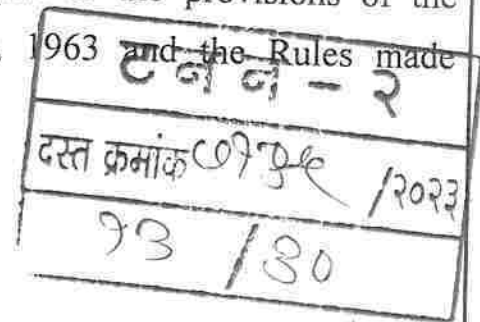 the provisions of the
1963 and the Rules made
ट न न - २
दस्त क्रमांक /२०२३
१३ / ३०